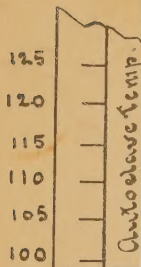 125
120
115
110
105
100
Autoclave Temp.